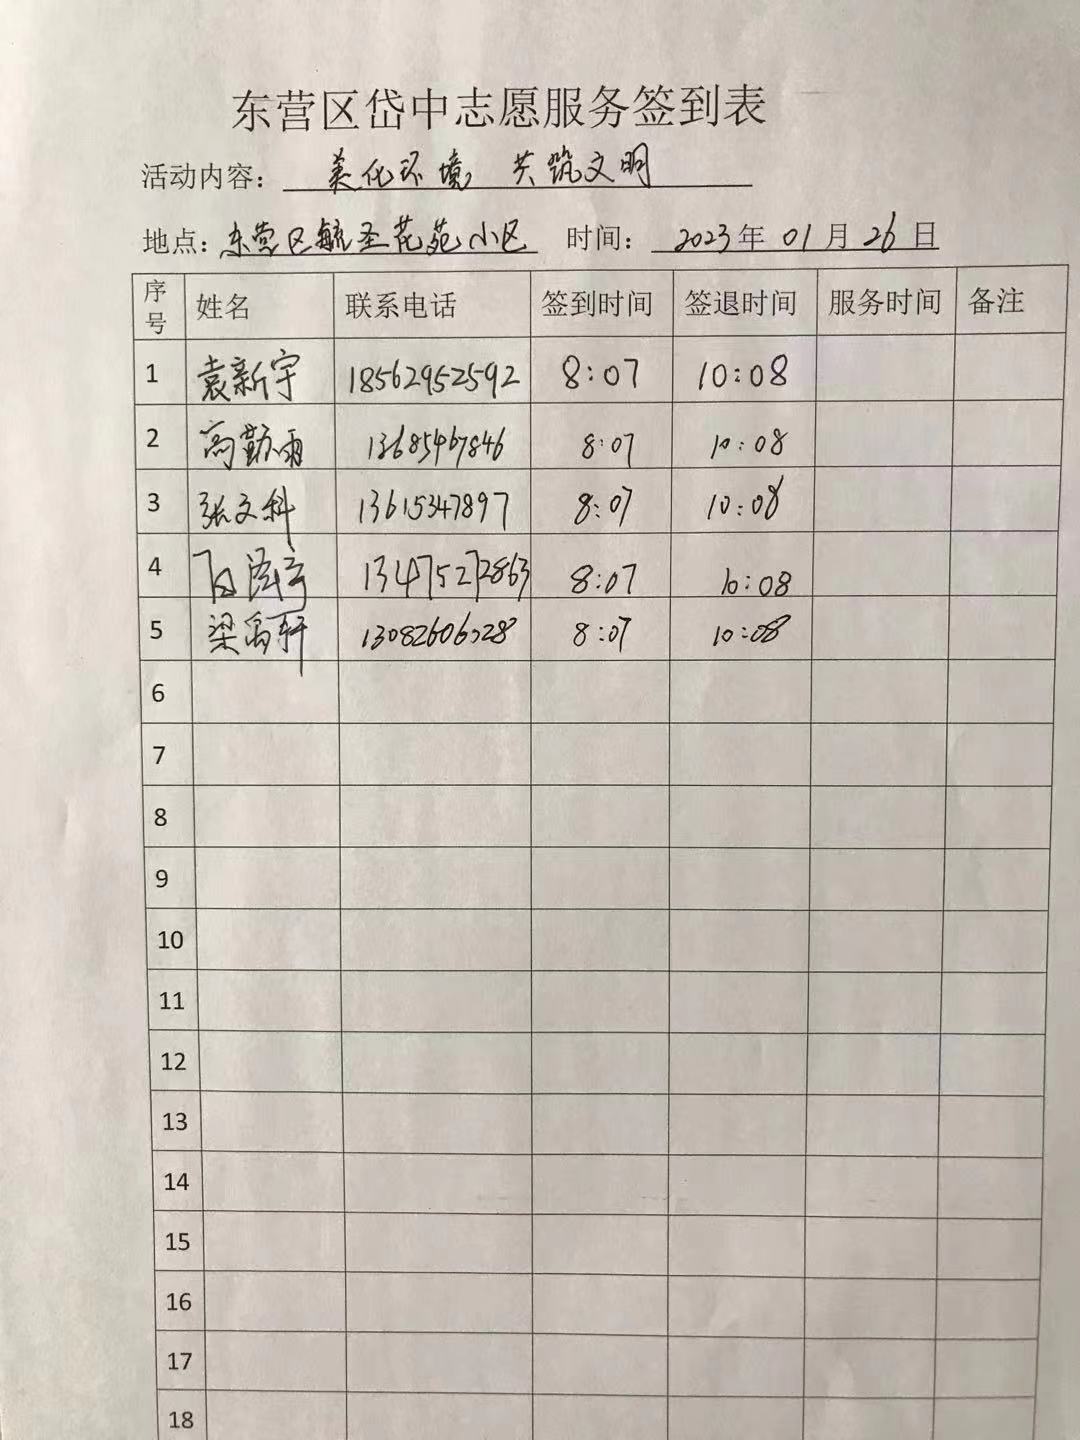 东营区岱中志愿服务签到表
活动内容：美化环境 共筑文明
地点：东营区毓圣花苑小区 时间：2023年01月26日
序号 姓名 联系电话 签到时间 签退时间 服务时间 备注
1 袁新宇 18562952592 8:07 10:08
2 高勤雨 13685467846 8:07 10:08
3 张文科 13615347897 8:07 10:08
4 13475272863 8:07 10:08
5 梁禹轩 8:07 10:08
6
7
8
9
10
11
12
13
14
15
16
17
18